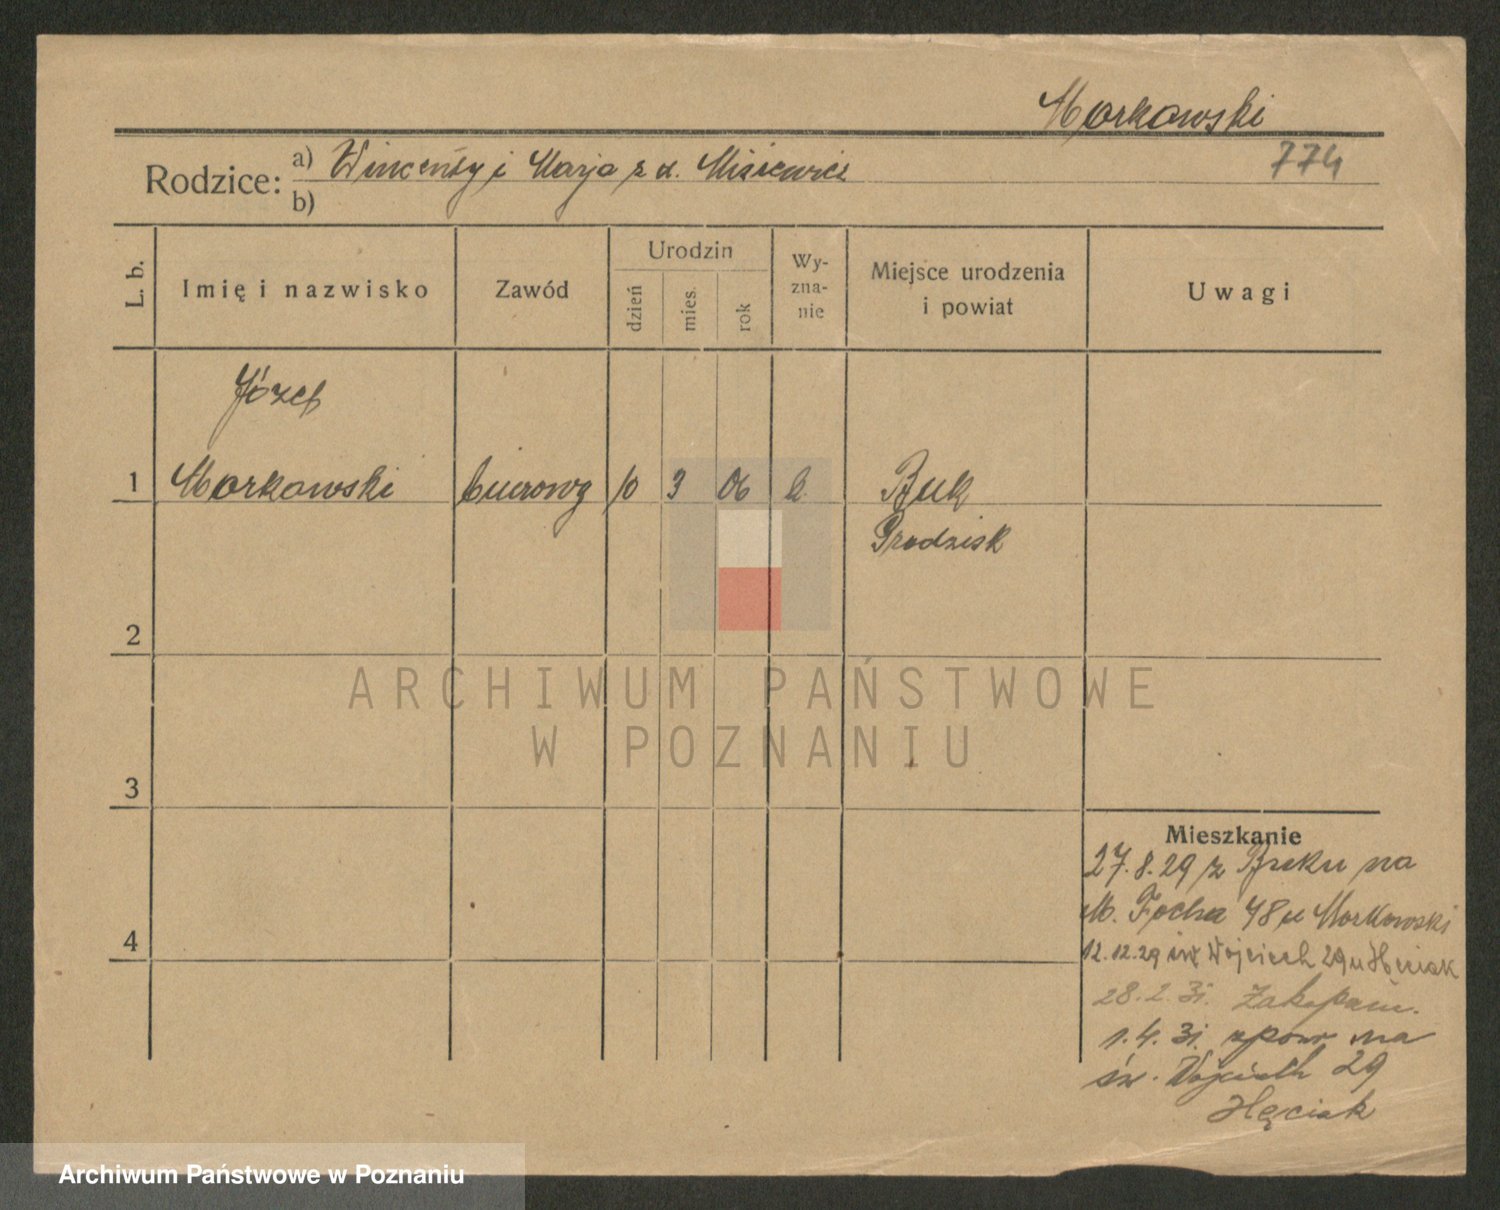 Markowski
774
Rodzice: a) Wincenty i Marja z d. Misiewicz
b)
L. b.
Imię i nazwisko
Zawód
Urodzin
dzień
mies.
rok
Wy-
zna-
nie
Miejsce urodzenia
i powiat
Uwagi
Józef
1 Markowski biurowy 10 3 06 k Buk
Grodzisk
2
3
4
Mieszkanie
27.8.29 z Buku na
M. Focha 48 u Markowski
12.12.29 św Wojciech 29 u
28.2.31. Zakopane.
1.4.31. zpow na
św. Wojciech 29
ARCHIWUM PAŃSTWOWE
W POZNANIU
Archiwum Państwowe w Poznaniu